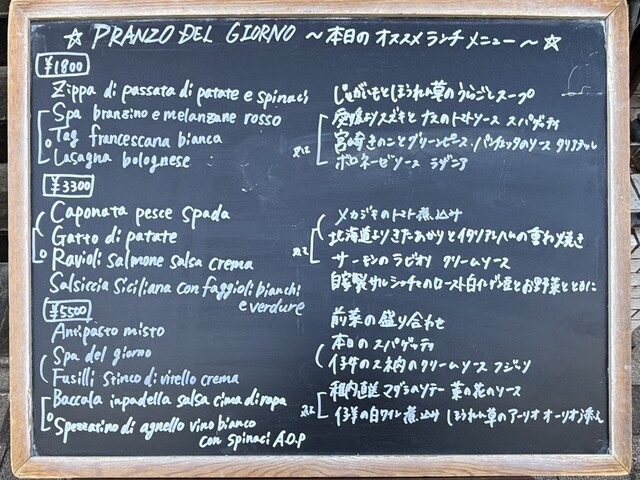 ☆ PRANZO DEL GIORNO ～本日のオススメランチメニュー～☆
¥1800
Zippa di passata di patate e spinaci じゃがいもとほうれん草のうらごしスープ
Spa branzino e melanzane rosso 愛媛よりスズキとナスのトマトソース スパゲッティ
Tag francescana bianca 宮崎きのことグリーンピース、パンチェッタのソース タリアテッレ
Lasagna bolognese ボロネーゼソース ラザニア
又は
¥3300
Caponata pesce spada メカジキのトマト煮込み
Gatto di patate 北海道よりきたあかりとイタリアンハムの重ね焼き
Ravioli salmone salsa crema サーモンのラビオリ クリームソース
又は
Salsiccia Siciliana con faggioli bianchi e verdure 自家製サルシッチャのロースト白インゲン豆とお野菜とともに
¥5500
Antipasto misto 前菜の盛り合わせ
Spa del giorno 本日のスパゲッティ
Fusilli Stinco di vitello crema 仔牛のスネ肉のクリームソース フジッリ
Baccala inpadella salsa cima di rapa 稚内産マダラのソテー 菜の花のソース
Spezzatino di agnello vino bianco con spinaci A.O.P 仔羊の白ワイン煮込み ほうれん草のアーリオオーリオ添え
又は